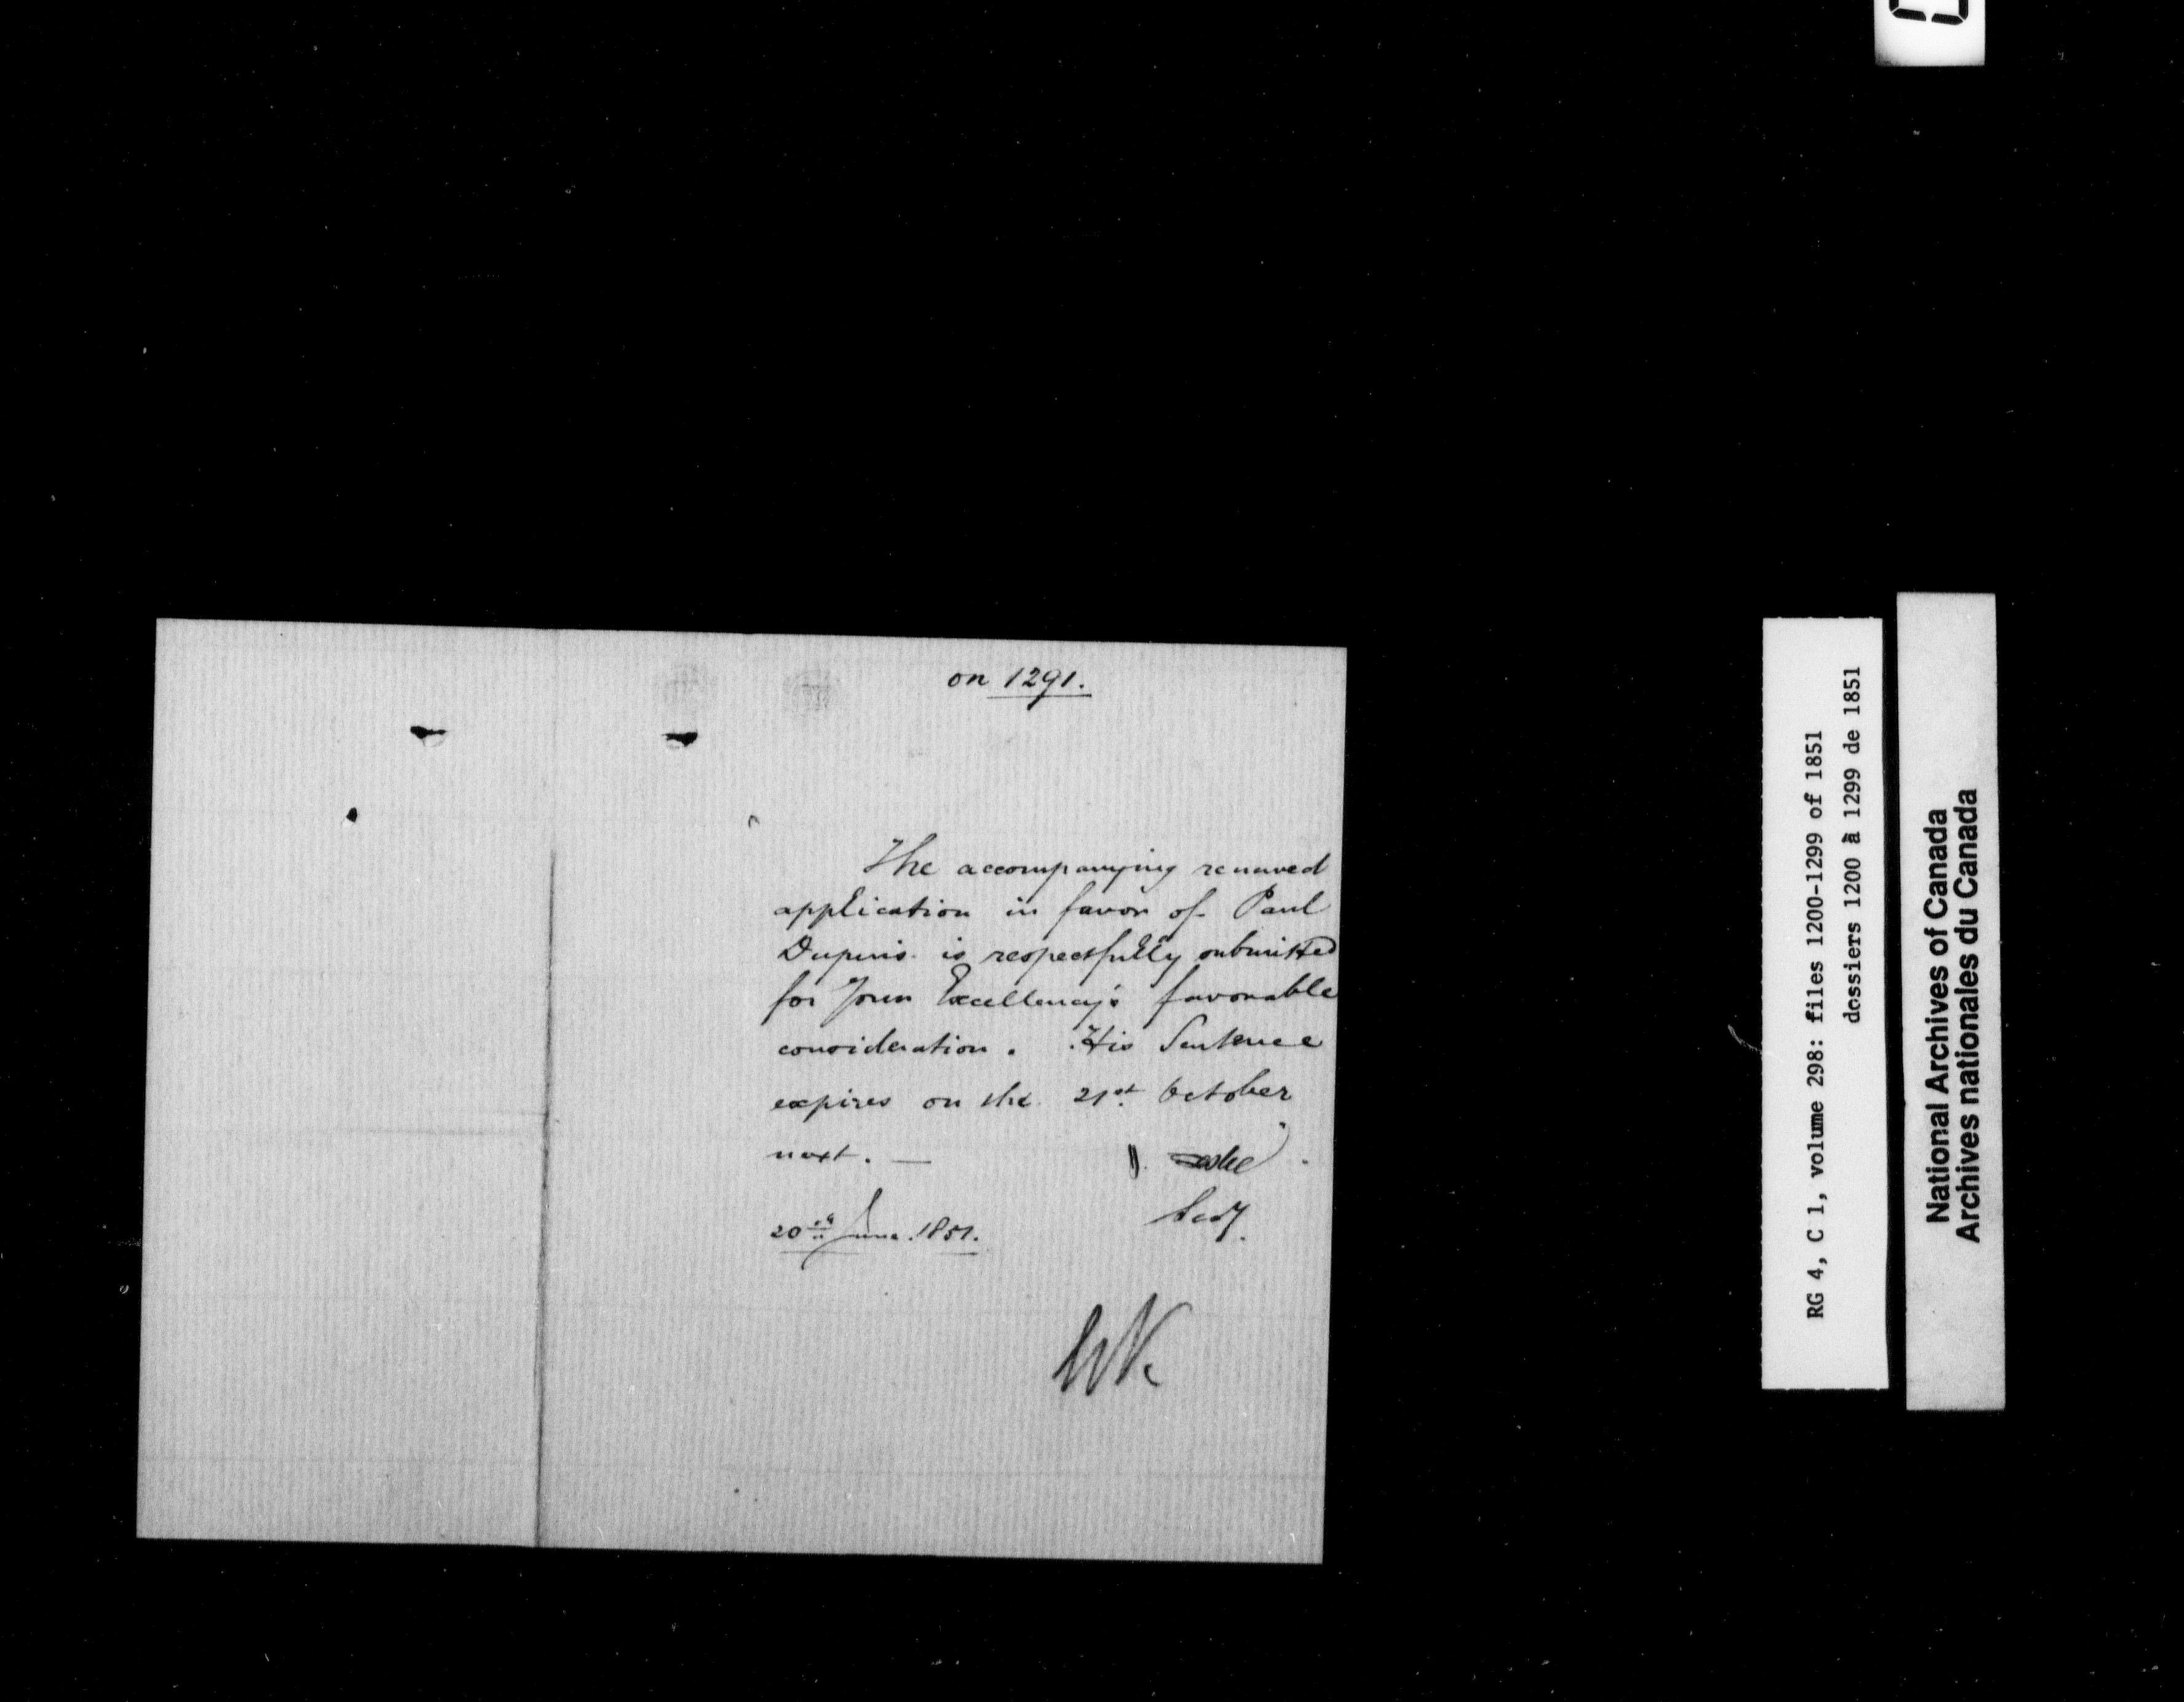 on 1291.
The accompanying renewed
application in favor of Paul
Dupuis is respectfully submitted
for Your Excellency's favorable
consideration. His Sentence
expires on the 21st October
next. —
Secy.
20th June. 1851.
RG 4, C 1, volume 298: files 1200-1299 of 1851
dossiers 1200 à 1299 de 1851
National Archives of Canada
Archives nationales du Canada